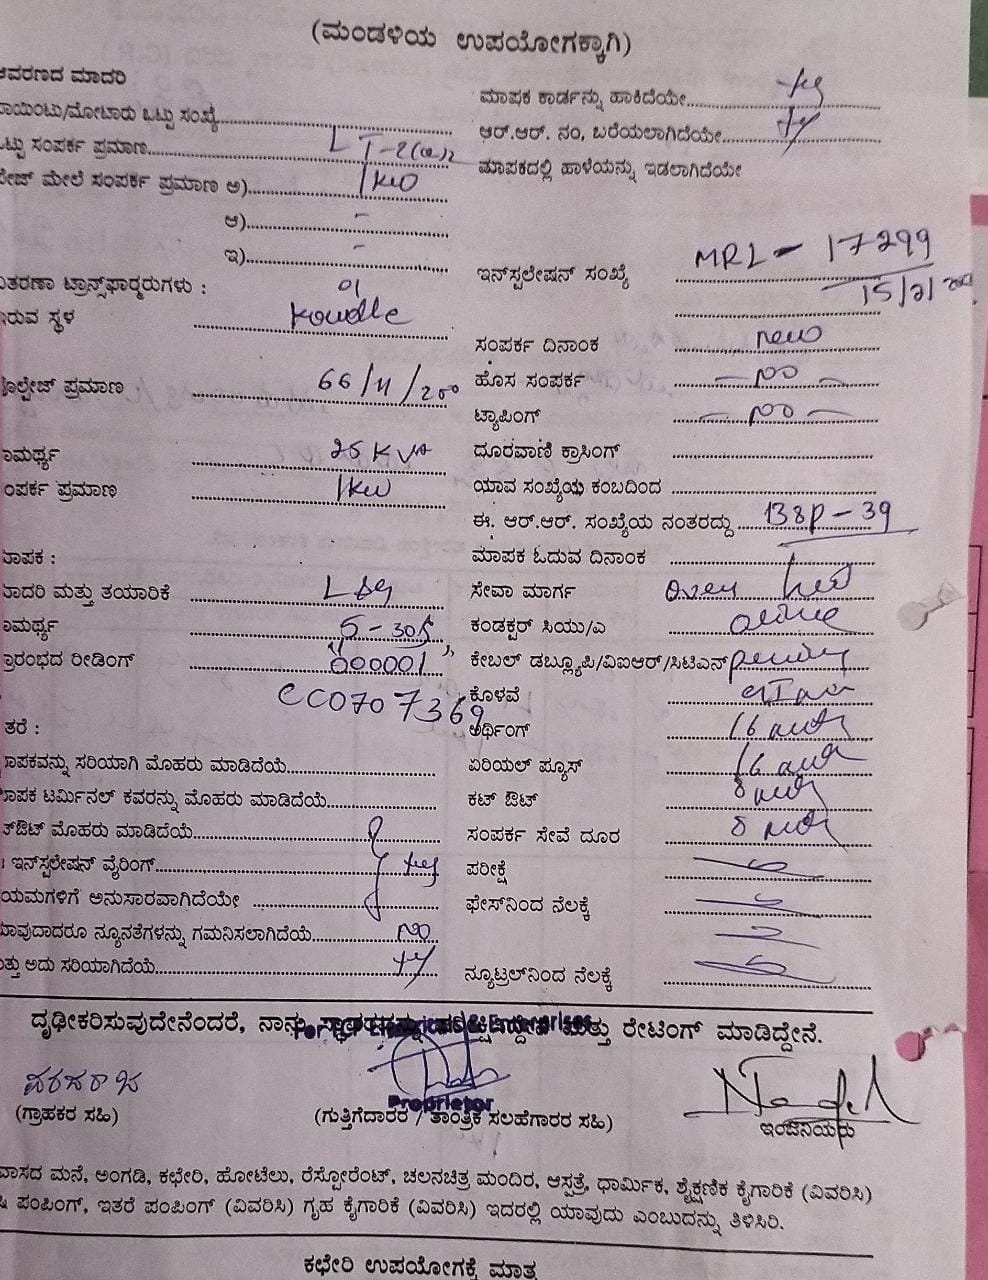 (ಮಂಡಳಿಯ ಉಪಯೋಗಕ್ಕಾಗಿ)
ಆವರಣದ ಮಾದರಿ
ಮಾಪಕ ಕಾರ್ಡನ್ನು ಹಾಕಿದೆಯೇ
ಪಾಯಿಂಟು/ಮೋಟಾರು ಒಟ್ಟು ಸಂಖ್ಯೆ
ಆರ್.ಆರ್. ನಂ, ಬರೆಯಲಾಗಿದೆಯೇ
ಒಟ್ಟು ಸಂಪರ್ಕ ಪ್ರಮಾಣ LT-2(a)2
ಮಾಪಕದಲ್ಲಿ ಹಾಳೆಯನ್ನು ಇಡಲಾಗಿದೆಯೇ
ಫೇಜ್ ಮೇಲೆ ಸಂಪರ್ಕ ಪ್ರಮಾಣ ಅ) 1kw
ಆ) -
ಇ) -
ಇನ್‌ಸ್ಟಲೇಷನ್ ಸಂಖ್ಯೆ MRL - 17299
ವಿತರಣಾ ಟ್ರಾನ್ಸ್‌ಫಾರ್ಮರುಗಳು : 01
ಇರುವ ಸ್ಥಳ Koudle
ಸಂಪರ್ಕ ದಿನಾಂಕ new
ವೋಲ್ಟೇಜ್ ಪ್ರಮಾಣ 66/11/200
ಹೊಸ ಸಂಪರ್ಕ - no -
ಟ್ಯಾಪಿಂಗ್ - no -
ಸಾಮರ್ಥ್ಯ 25 KVA
ದೂರವಾಣಿ ಕ್ರಾಸಿಂಗ್
ಸಂಪರ್ಕ ಪ್ರಮಾಣ 1kw
ಯಾವ ಸಂಖ್ಯೆಯ ಕಂಬದಿಂದ
ಈ. ಆರ್.ಆರ್. ಸಂಖ್ಯೆಯ ನಂತರದ್ದು 138P - 39
ಮಾಪಕ :
ಮಾಪಕ ಓದುವ ದಿನಾಂಕ
ಮಾದರಿ ಮತ್ತು ತಯಾರಿಕೆ L&G
ಸೇವಾ ಮಾರ್ಗ Over
ಸಾಮರ್ಥ್ಯ 5-30A
ಕಂಡಕ್ಟರ್ ಸಿಯು/ಎ
ಪ್ರಾರಂಭದ ರೀಡಿಂಗ್ 000001
ಕೇಬಲ್ ಡಬ್ಲ್ಯೂಪಿ/ವಿಐಆರ್/ಸಿಟಿಎಸ್
CC0707369
ಕೊಳವೆ
ಇತರೆ :
ಅರ್ಥಿಂಗ್ 16
ಮಾಪಕವನ್ನು ಸರಿಯಾಗಿ ಮೊಹರು ಮಾಡಿದೆಯೆ
ಏರಿಯಲ್ ಫ್ಯೂಸ್ 16
ಮಾಪಕ ಟರ್ಮಿನಲ್ ಕವರನ್ನು ಮೊಹರು ಮಾಡಿದೆಯೆ
ಕಟ್ ಔಟ್ 8
ಕಟ್‌ಔಟ್ ಮೊಹರು ಮಾಡಿದೆಯೆ
ಸಂಪರ್ಕ ಸೇವೆ ದೂರ 8
ಇನ್‌ಸ್ಟಲೇಷನ್ ವೈರಿಂಗ್ yes
ಪರೀಕ್ಷೆ
ನಿಯಮಗಳಿಗೆ ಅನುಸಾರವಾಗಿದೆಯೇ
ಫೇಸ್‌ನಿಂದ ನೆಲಕ್ಕೆ
ಯಾವುದಾದರೂ ನ್ಯೂನತೆಗಳನ್ನು ಗಮನಿಸಲಾಗಿದೆಯೆ no
ಮತ್ತು ಅದು ಸರಿಯಾಗಿದೆಯೆ
ನ್ಯೂಟ್ರಲ್‌ನಿಂದ ನೆಲಕ್ಕೆ
ದೃಢೀಕರಿಸುವುದೇನೆಂದರೆ, ನಾನು ಮತ್ತು ರೇಟಿಂಗ್ ಮಾಡಿದ್ದೇನೆ.
Proprietor
(ಗ್ರಾಹಕರ ಸಹಿ)
(ಗುತ್ತಿಗೆದಾರರ / ತಾಂತ್ರಿಕ ಸಲಹೆಗಾರರ ಸಹಿ)
ಇಂಜಿನಿಯರು
ವಾಸದ ಮನೆ, ಅಂಗಡಿ, ಕಛೇರಿ, ಹೋಟೆಲು, ರೆಸ್ಟೋರೆಂಟ್, ಚಲನಚಿತ್ರ ಮಂದಿರ, ಆಸ್ಪತ್ರೆ, ಧಾರ್ಮಿಕ, ಶೈಕ್ಷಣಿಕ ಕೈಗಾರಿಕೆ (ವಿವರಿಸಿ)
ಪಂಪಿಂಗ್, ಇತರೆ ಪಂಪಿಂಗ್ (ವಿವರಿಸಿ) ಗೃಹ ಕೈಗಾರಿಕೆ (ವಿವರಿಸಿ) ಇದರಲ್ಲಿ ಯಾವುದು ಎಂಬುದನ್ನು ತಿಳಿಸಿರಿ.
ಕಛೇರಿ ಉಪಯೋಗಕ್ಕೆ ಮಾತ್ರ